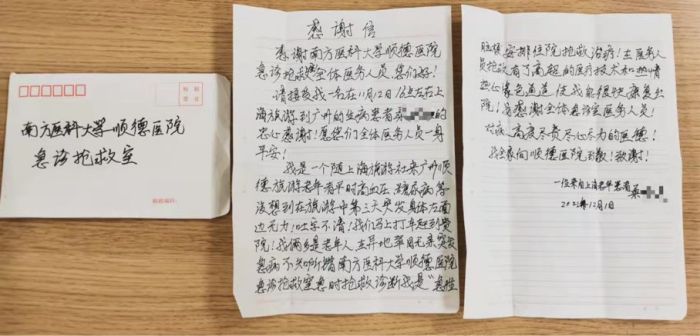 南方医科大学顺德医院
急诊抢救室
感谢信
感谢南方医科大学顺德医院
急诊抢救全体医务人员，您们好！
请接受我一名在11月12日16点左右上
海旅游到广州的生病患者
忠心感谢！愿您们全体医务人员一身
平安！
我是一个随上海旅游社来广州顺
德旅游老年者平时高血压、糖尿病等
没想到在旅游中第三天突发身体左面
边无力！吐字不清！我们马上打车赶到贵
院！我俩夕是老年人在异地举目无亲突发
急病不知所措南方医科大学顺德医院
急诊抢救室急时抢救诊断我是"急性
脑梗安排住院抢救治疗！在医务人
员抢救有了高超的医疗技术和热情
热心绿色通道使我能很快康复出
院！我感谢全体急诊室医务人员！
对病人高度尽责尽心尽力的医德！
我全家向顺德医院致敬！致谢！
一位来自上海老年患者
2022年12月1日